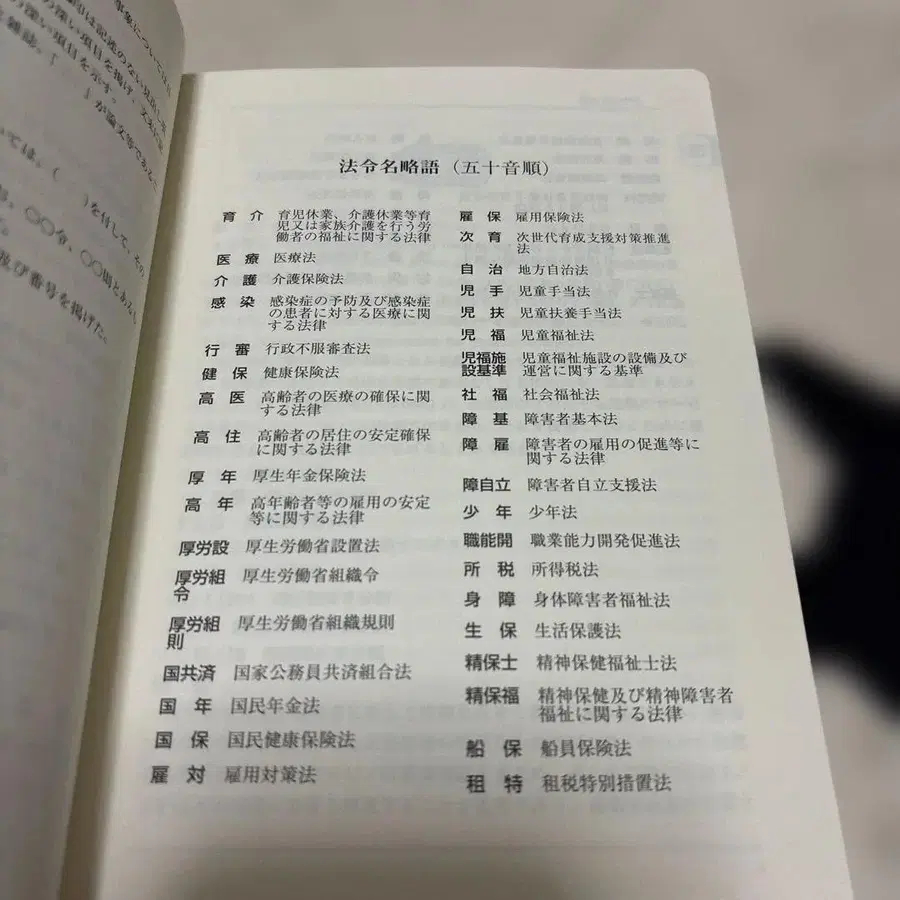 事象については
印は記述のない見出し項
の深い項目を掲げ、文末に
の深い項目を示す。
雑誌、「　　」が論文等であるこ
いては、(　　)を付して、その
号、〇〇令、〇〇則とあるも
及び番号を掲げた。
法令名略語（五十音順）
育介 育児休業、介護休業等育
児又は家族介護を行う労
働者の福祉に関する法律
医療 医療法
介護 介護保険法
感染 感染症の予防及び感染症
の患者に対する医療に関
する法律
行審 行政不服審査法
健保 健康保険法
高医 高齢者の医療の確保に関
する法律
高住 高齢者の居住の安定確保
に関する法律
厚年 厚生年金保険法
高年 高年齢者等の雇用の安定
等に関する法律
厚労設 厚生労働省設置法
厚労組 厚生労働省組織令
令
厚労組 厚生労働省組織規則
則
国共済 国家公務員共済組合法
国年 国民年金法
国保 国民健康保険法
雇対 雇用対策法
雇保 雇用保険法
次育 次世代育成支援対策推進
法
自治 地方自治法
児手 児童手当法
児扶 児童扶養手当法
児福 児童福祉法
児福施 児童福祉施設の設備及び
設基準 運営に関する基準
社福 社会福祉法
障基 障害者基本法
障雇 障害者の雇用の促進等に
関する法律
障自立 障害者自立支援法
少年 少年法
職能開 職業能力開発促進法
所税 所得税法
身障 身体障害者福祉法
生保 生活保護法
精保士 精神保健福祉士法
精保福 精神保健及び精神障害者
福祉に関する法律
船保 船員保険法
租特 租税特別措置法